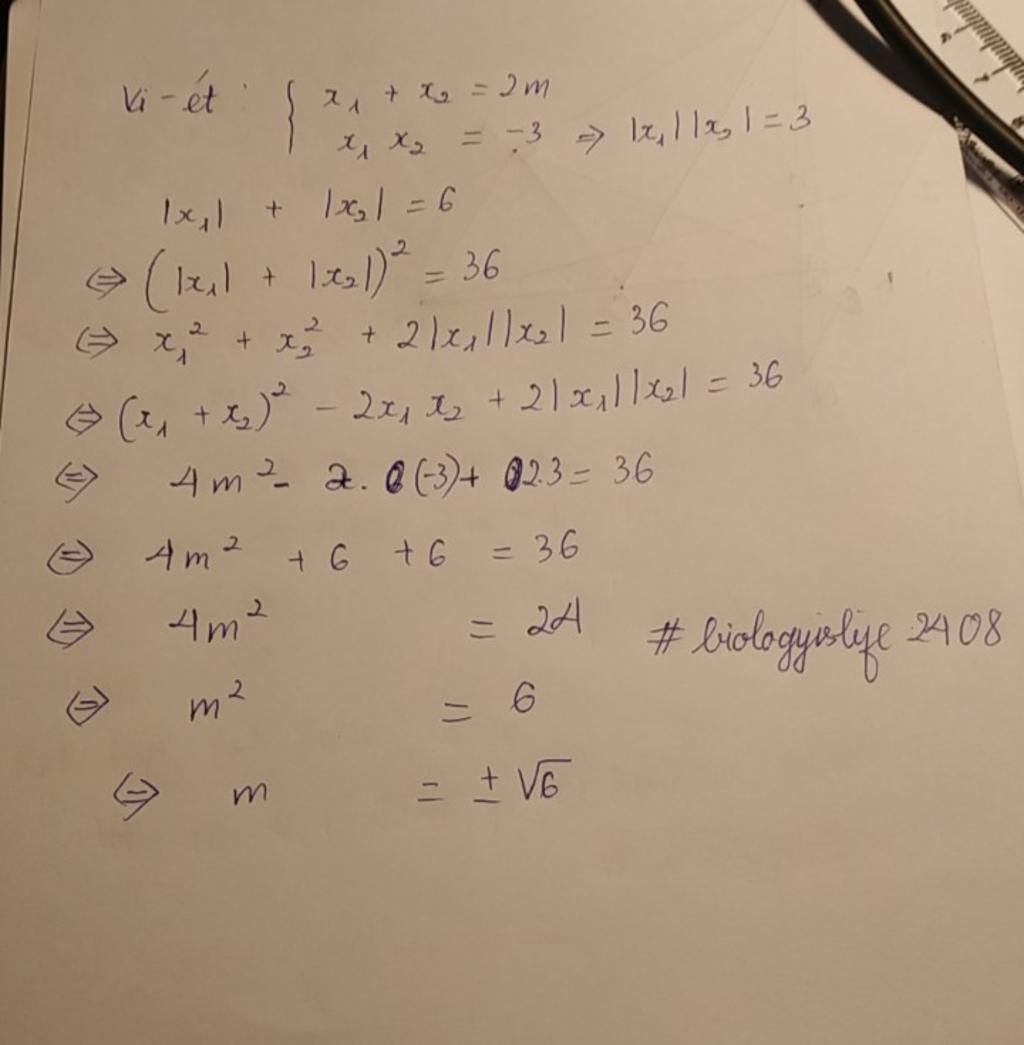 Vi-ét: { x₁ + x₂ = 2m
x₁ x₂ = -3 ⇒ |x₁||x₂| = 3
|x₁| + |x₂| = 6
⇔ (|x₁| + |x₂|)² = 36
⇔ x₁² + x₂² + 2|x₁||x₂| = 36
⇔ (x₁ + x₂)² - 2x₁ x₂ + 2|x₁||x₂| = 36
⇔ 4m² - 2.(-3) + 2.3 = 36
⇔ 4m² + 6 + 6 = 36
⇔ 4m² = 24
# biologyislife 2408
⇔ m² = 6
⇔ m = ± √6